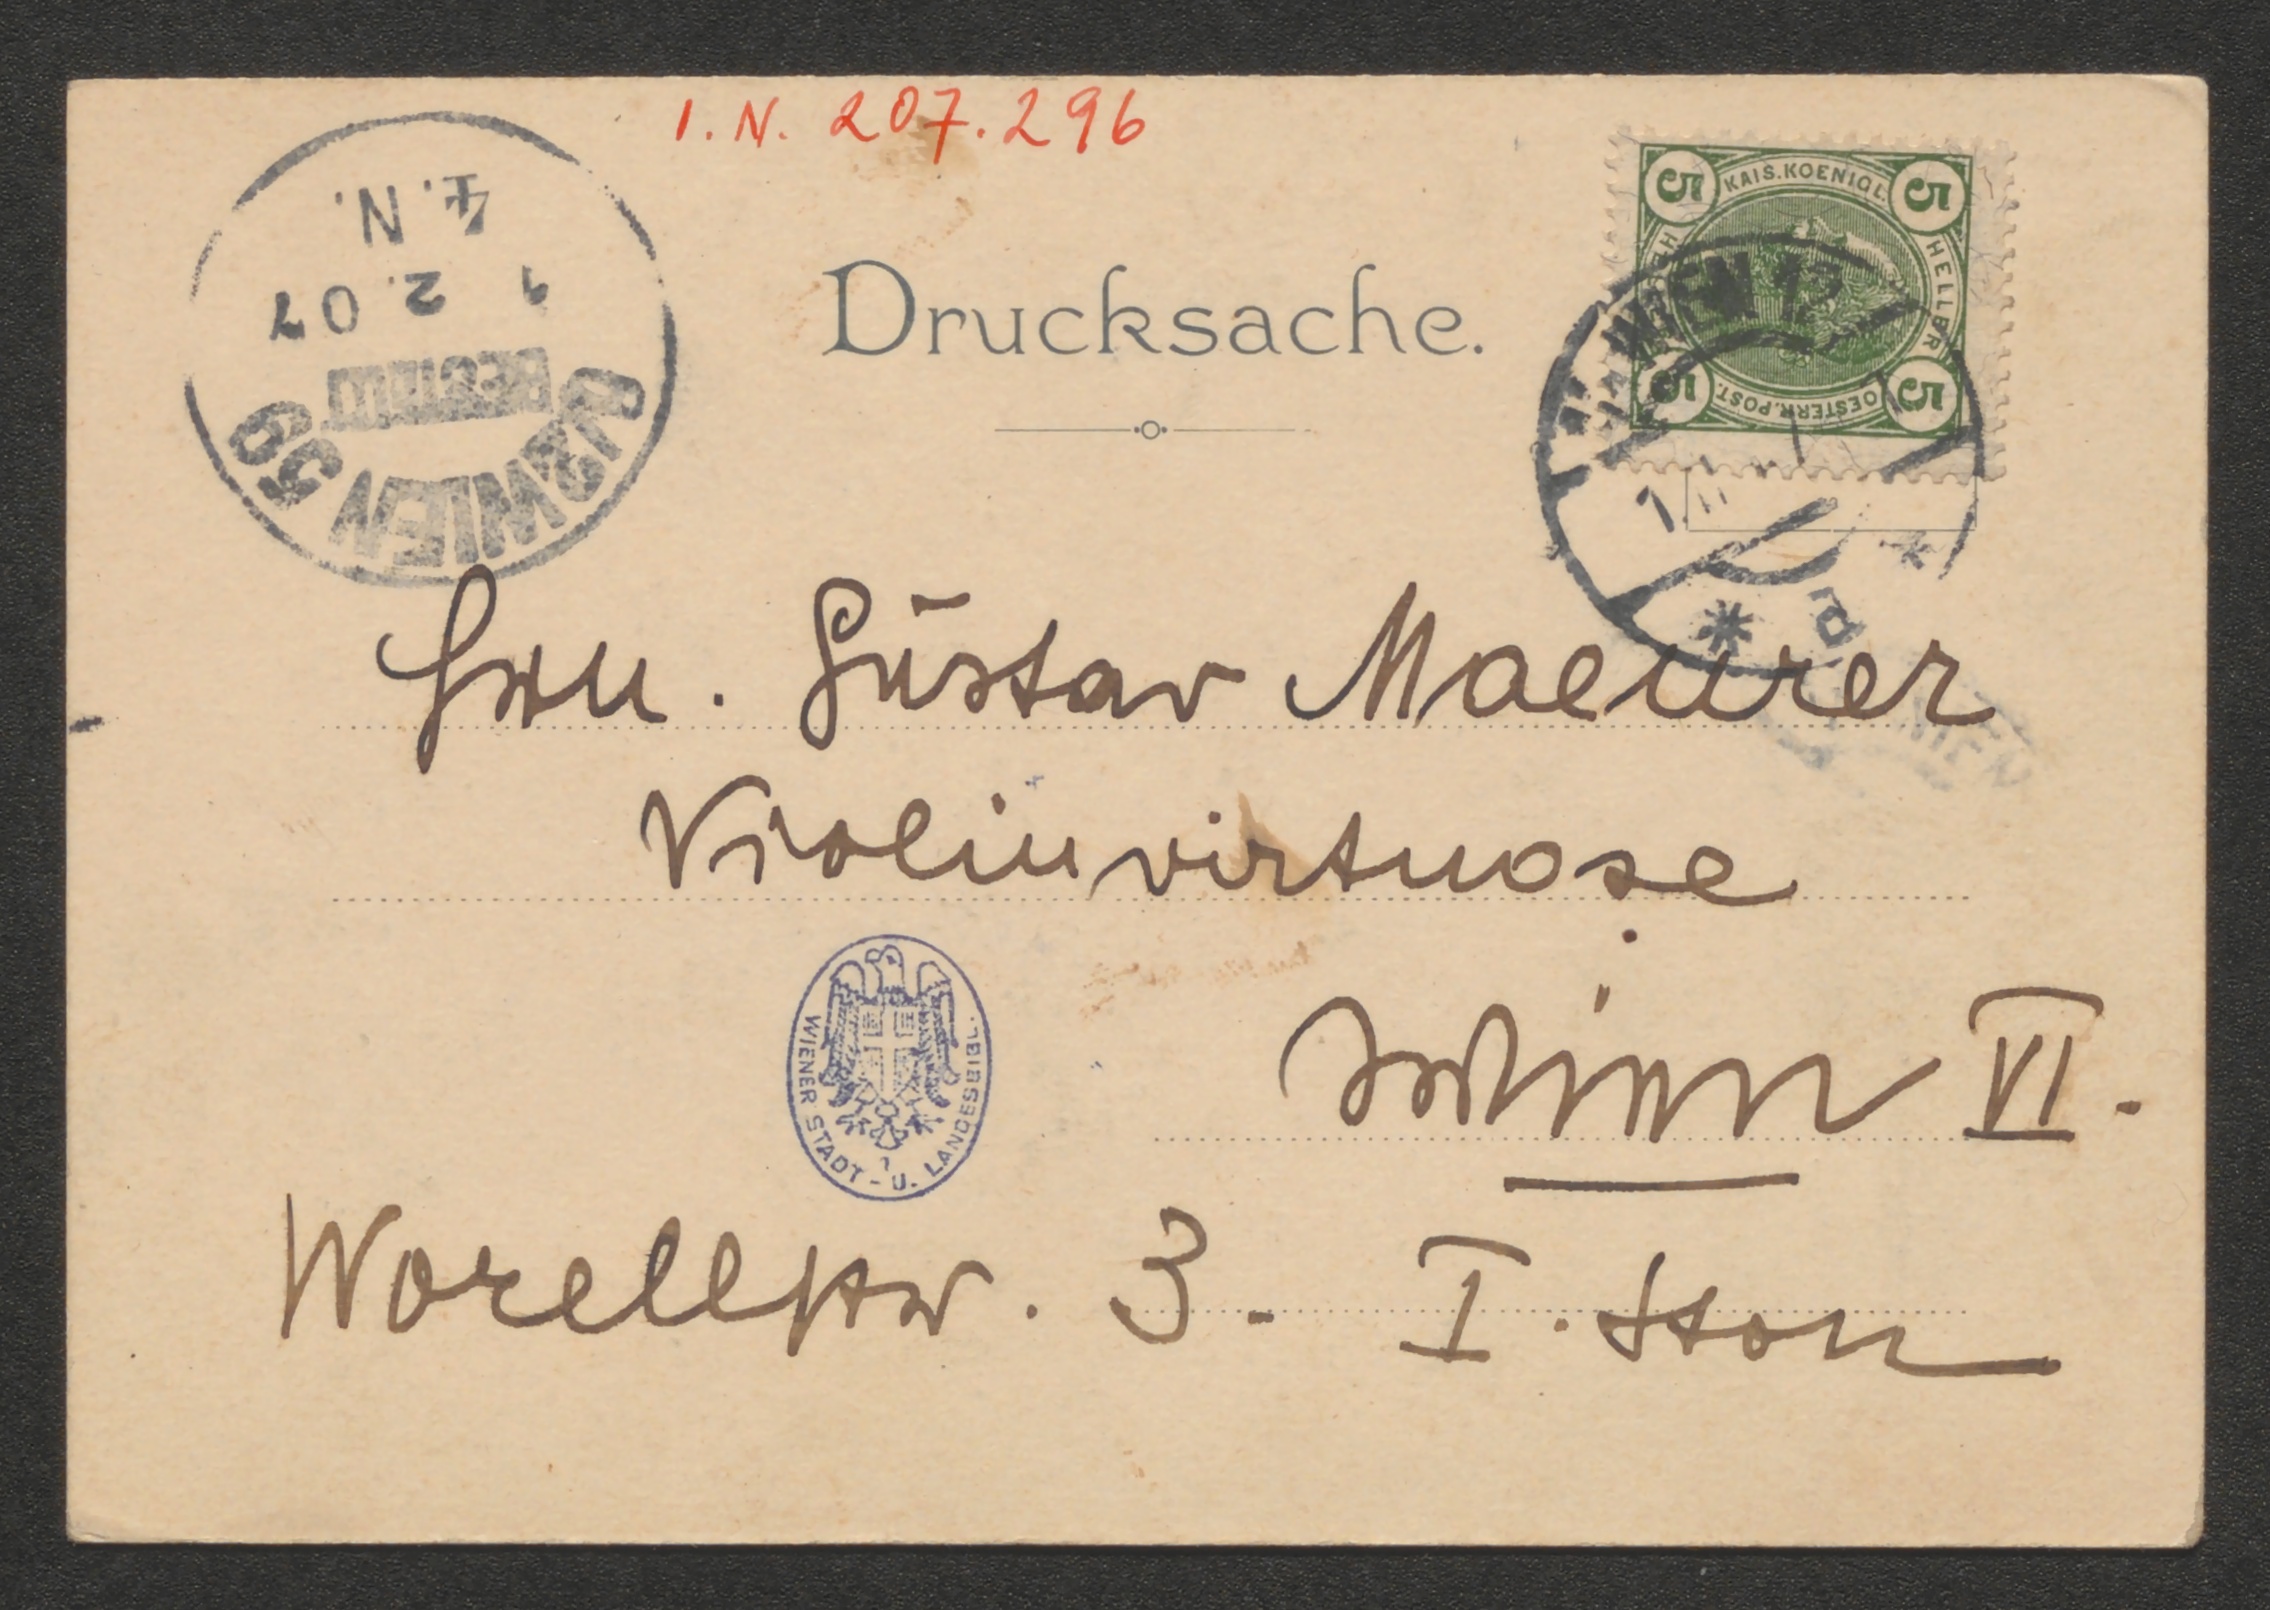 I.N. 207.296
Drucksache.
5 KAIS.KOENIGL. 5
HELLER
5 OESTERR.POST. 5
WIEN
12/1 WIEN 59
BESTELLT
1 2.07
4.N.
Hrn. Gustav Maeurer
Violinvirtuose
Wien VI.
WIENER STADT-U. LANDESBIBL.
Worellstr. 3. I. Stock